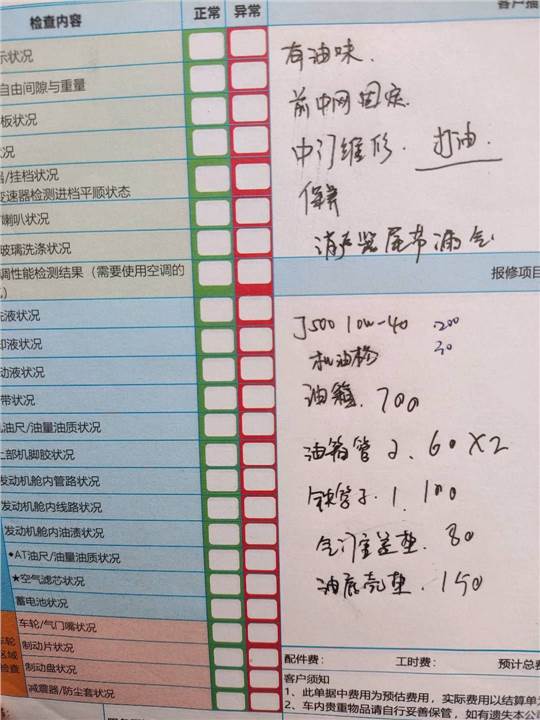 检查内容 正常 异常
客户描
示状况
自由间隙与重量
板状况
况
器/挂档状况
变速器检测进档平顺状态
喇叭状况
玻璃洗涤状况
调性能检测结果（需要使用空调的
洗液状况
却液状况
动液状况
带状况
油尺/油量油质状况
上部机脚胶状况
发动机舱内管路状况
发动机舱内线路状况
发动机舱内油渍状况
★AT油尺/油量油质状况
★空气滤芯状况
蓄电池状况
车轮/气门嘴状况
制动片状况
制动盘状况
减震器/防尘套状况
车轮
区域
检查
有油味
前中网固定
中门维修. 打油
保养
消声器尾节漏气
报修项目
J500 10w-40 200
机油格 30
油箱. 700
油箱管 2. 60×2
铁管子. 1. 100
气门室盖垫. 80
油底壳垫. 150
配件费： 工时费： 预计总费
客户须知
1、此单据中费用为预估费用，实际费用以结算单
2、车内贵重物品请自行妥善保管，如有遗失本公